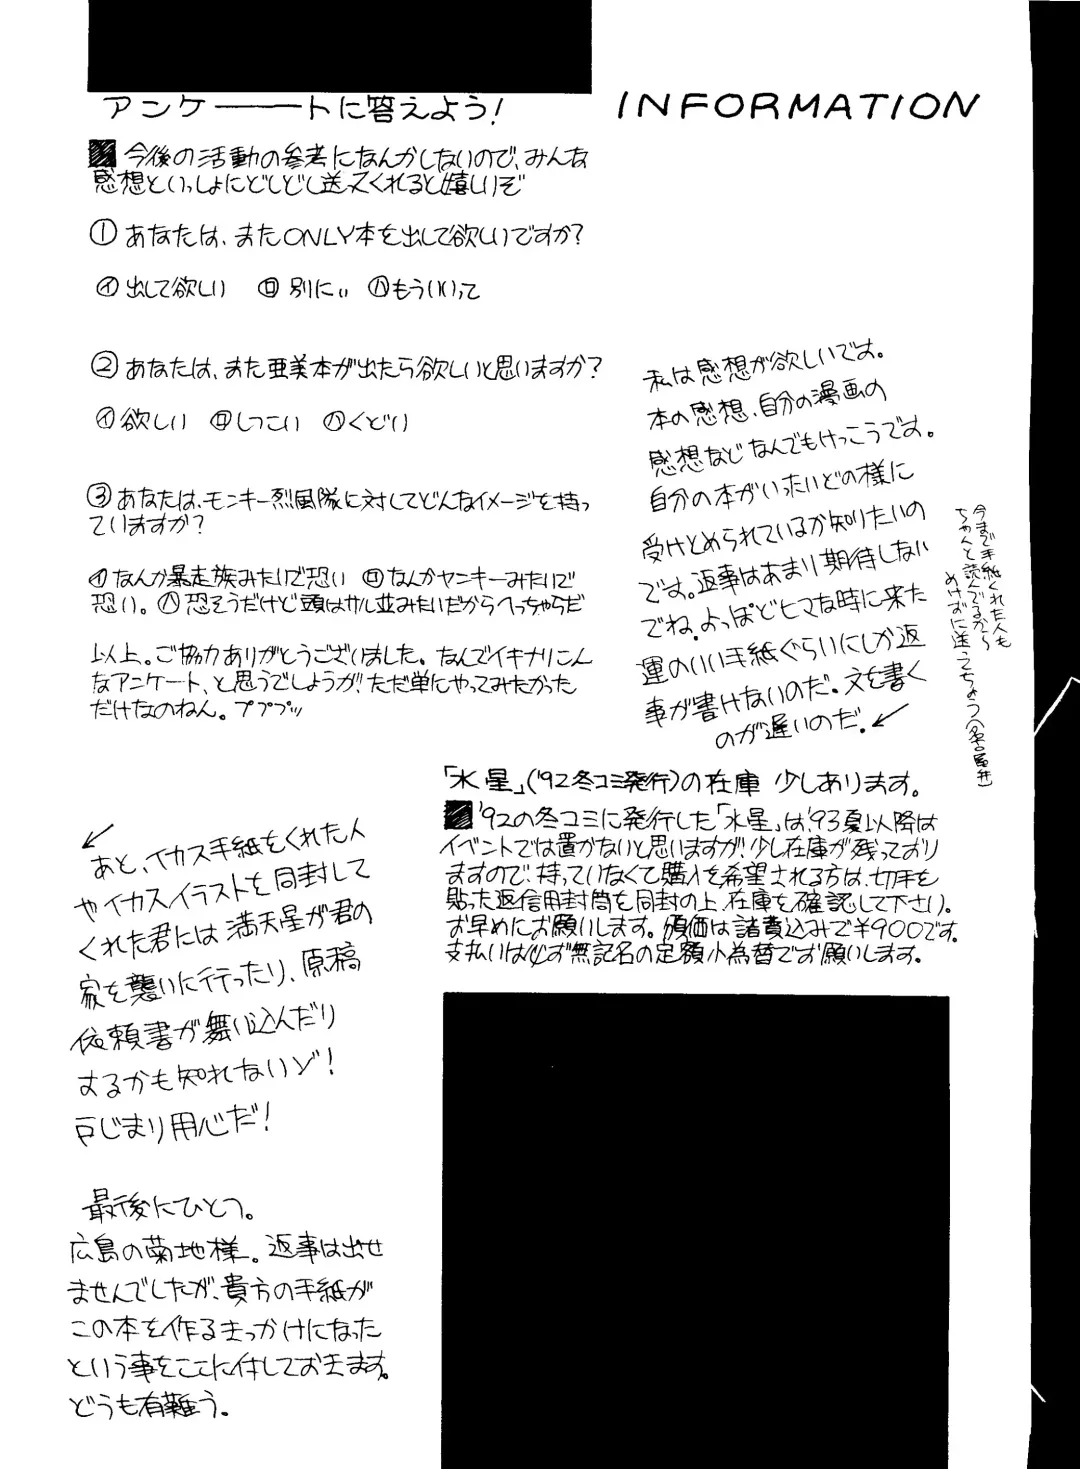 アンケートに答えよう!
INFORMATION
今後の活動の参考になんかしないので、みんな
感想といっしょにどしどし送ってくれると嬉しいぞ
①あなたは、またONLY本を出して欲しいですか?
㋑出して欲しい ㋺別に〃 ㋩もういいって
②あなたは、また亜美本が出たら欲しいと思いますか?
㋑欲しい ㋺しつこい ㋩くどい
③あなたは、モンキー烈風隊に対してどんなイメージを持っ
ていますか?
㋑なんか暴走族みたいで恐い ㋺なんかヤンキーみたいで
恐い。㋩恐そうだけど頭はサル並みたいだからへっちゃらだ
以上。ご協力ありがとうございました。なんでイキナリこん
なアンケート、と思うでしょうが、ただ単にやってみたかった
だけなのねん。プププッ
私は感想が欲しいです。
本の感想、自分の漫画の
感想などなんでもけっこうです。
自分の本がいったいどの様に
受けとめられているか知りたいの
です。返事はあまり期待しない
でね。よっぽどヒマな時に来た
運のいい手紙ぐらいにしか返
事が書けないのだ。文を書く
のが遅いのだ。
今まで手紙くれた人も
ちゃんと読んでるから
めげずに送ってちょう(名古屋弁)
あと、イカス手紙をくれた人
やイカスイラストを同封して
くれた君には満天星が君の
家を襲いに行ったり、原稿
依頼書が舞い込んだり
するかも知れないゾ!
戸じまり用心だ!
「水星」('92冬コミ発行)の在庫 少しあります。
'92の冬コミに発行した「水星」は、'93夏以降は
イベントでは置かないと思いますが、少し在庫が残っており
ますので、持っていなくて購入を希望される方は、切手を
貼った返信用封筒を同封の上、在庫を確認して下さい。
お早めにお願いします。頒価は諸費込みで¥900です。
支払いは必ず無記名の定額小為替でお願いします。
最後にひとつ。
広島の菊地様。返事は出せ
ませんでしたが、貴方の手紙が
この本を作るきっかけになった
という事をここに付しておきます。
どうも有難う。